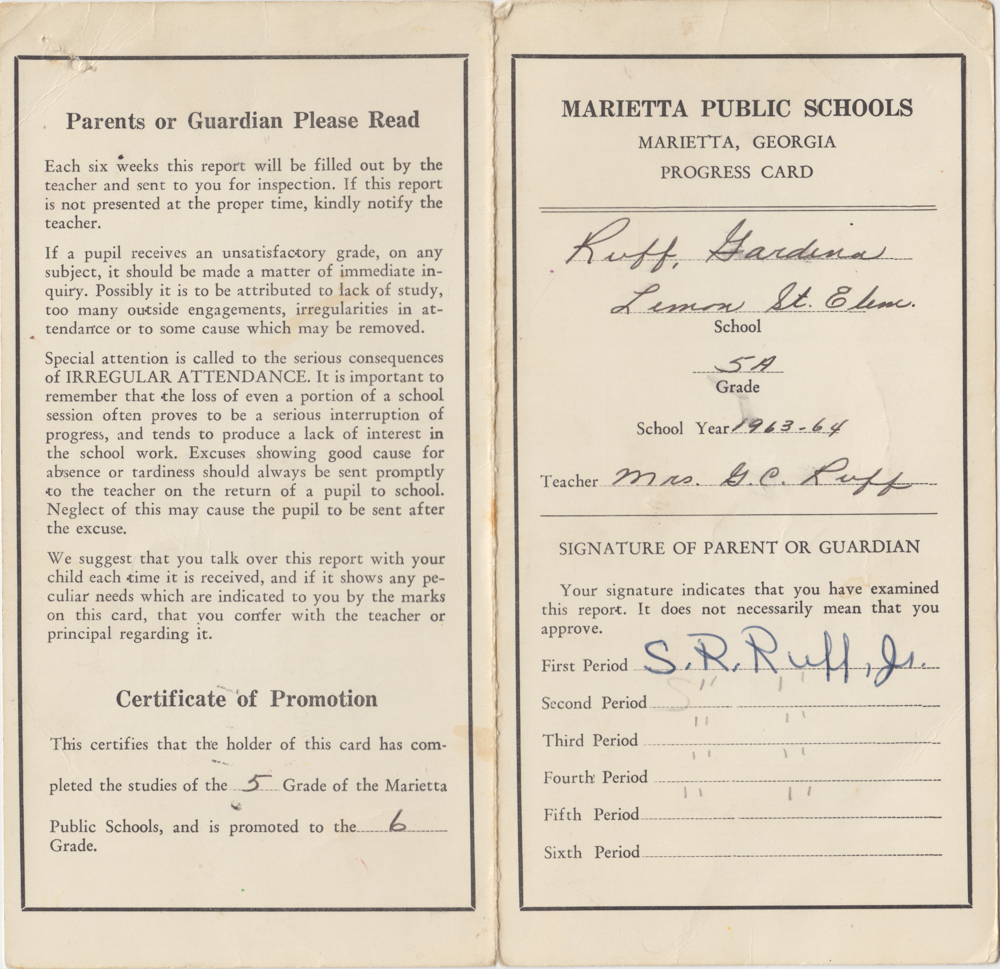 Parents or Guardian Please Read
Each six weeks this report will be filled out by the
teacher and sent to you for inspection. If this report
is not presented at the proper time, kindly notify the
teacher.
If a pupil receives an unsatisfactory grade, on any
subject, it should be made a matter of immediate in-
quiry. Possibly it is to be attributed to lack of study,
too many outside engagements, irregularities in at-
tendance or to some cause which may be removed.
Special attention is called to the serious consequences
of IRREGULAR ATTENDANCE. It is important to
remember that the loss of even a portion of a school
session often proves to be a serious interruption of
progress, and tends to produce a lack of interest in
the school work. Excuses showing good cause for
absence or tardiness should always be sent promptly
to the teacher on the return of a pupil to school.
Neglect of this may cause the pupil to be sent after
the excuse.
We suggest that you talk over this report with your
child each time it is received, and if it shows any pe-
culiar needs which are indicated to you by the marks
on this card, that you confer with the teacher or
principal regarding it.
Certificate of Promotion
This certifies that the holder of this card has com-
pleted the studies of the 5 Grade of the Marietta
Public Schools, and is promoted to the 6
Grade.
MARIETTA PUBLIC SCHOOLS
MARIETTA, GEORGIA
PROGRESS CARD
Ruff, Gardina
Lemon St. Elem.
School
5A
Grade
School Year 1963-64
Teacher Mrs. G.C. Ruff
SIGNATURE OF PARENT OR GUARDIAN
Your signature indicates that you have examined
this report. It does not necessarily mean that you
approve.
First Period S.R. Ruff, Jr.
Second Period " "
Third Period " "
Fourth Period " "
Fifth Period " "
Sixth Period